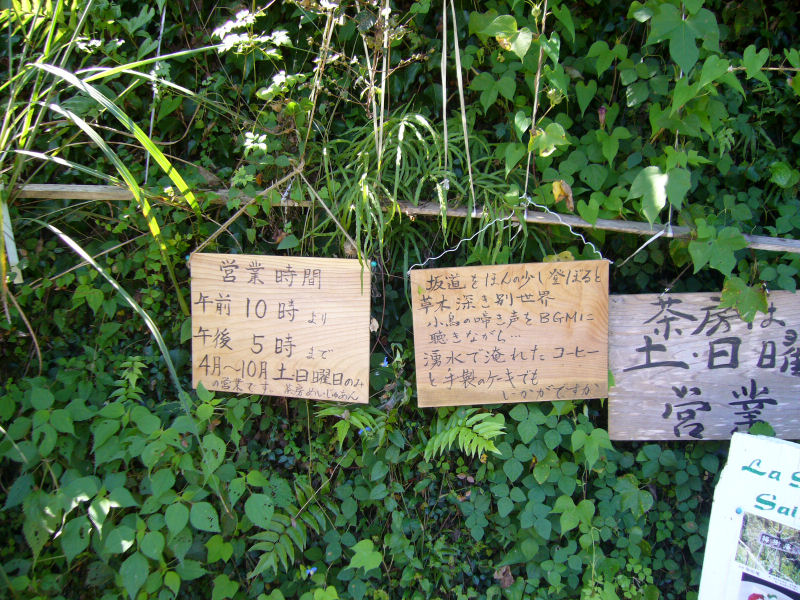 営業時間
午前 10時 より
午後 5時 まで
4月〜10月 土・日曜日のみ
の営業です。茶房めんじゅあん
坂道をほんの少し登ぼると
草木深き別世界
小鳥の啼き声をBGMに
聴きながら…
湧水で淹れたコーヒー
と手製のケーキでも
いかがですか
茶房は
土・日曜
営業
La S
Sai